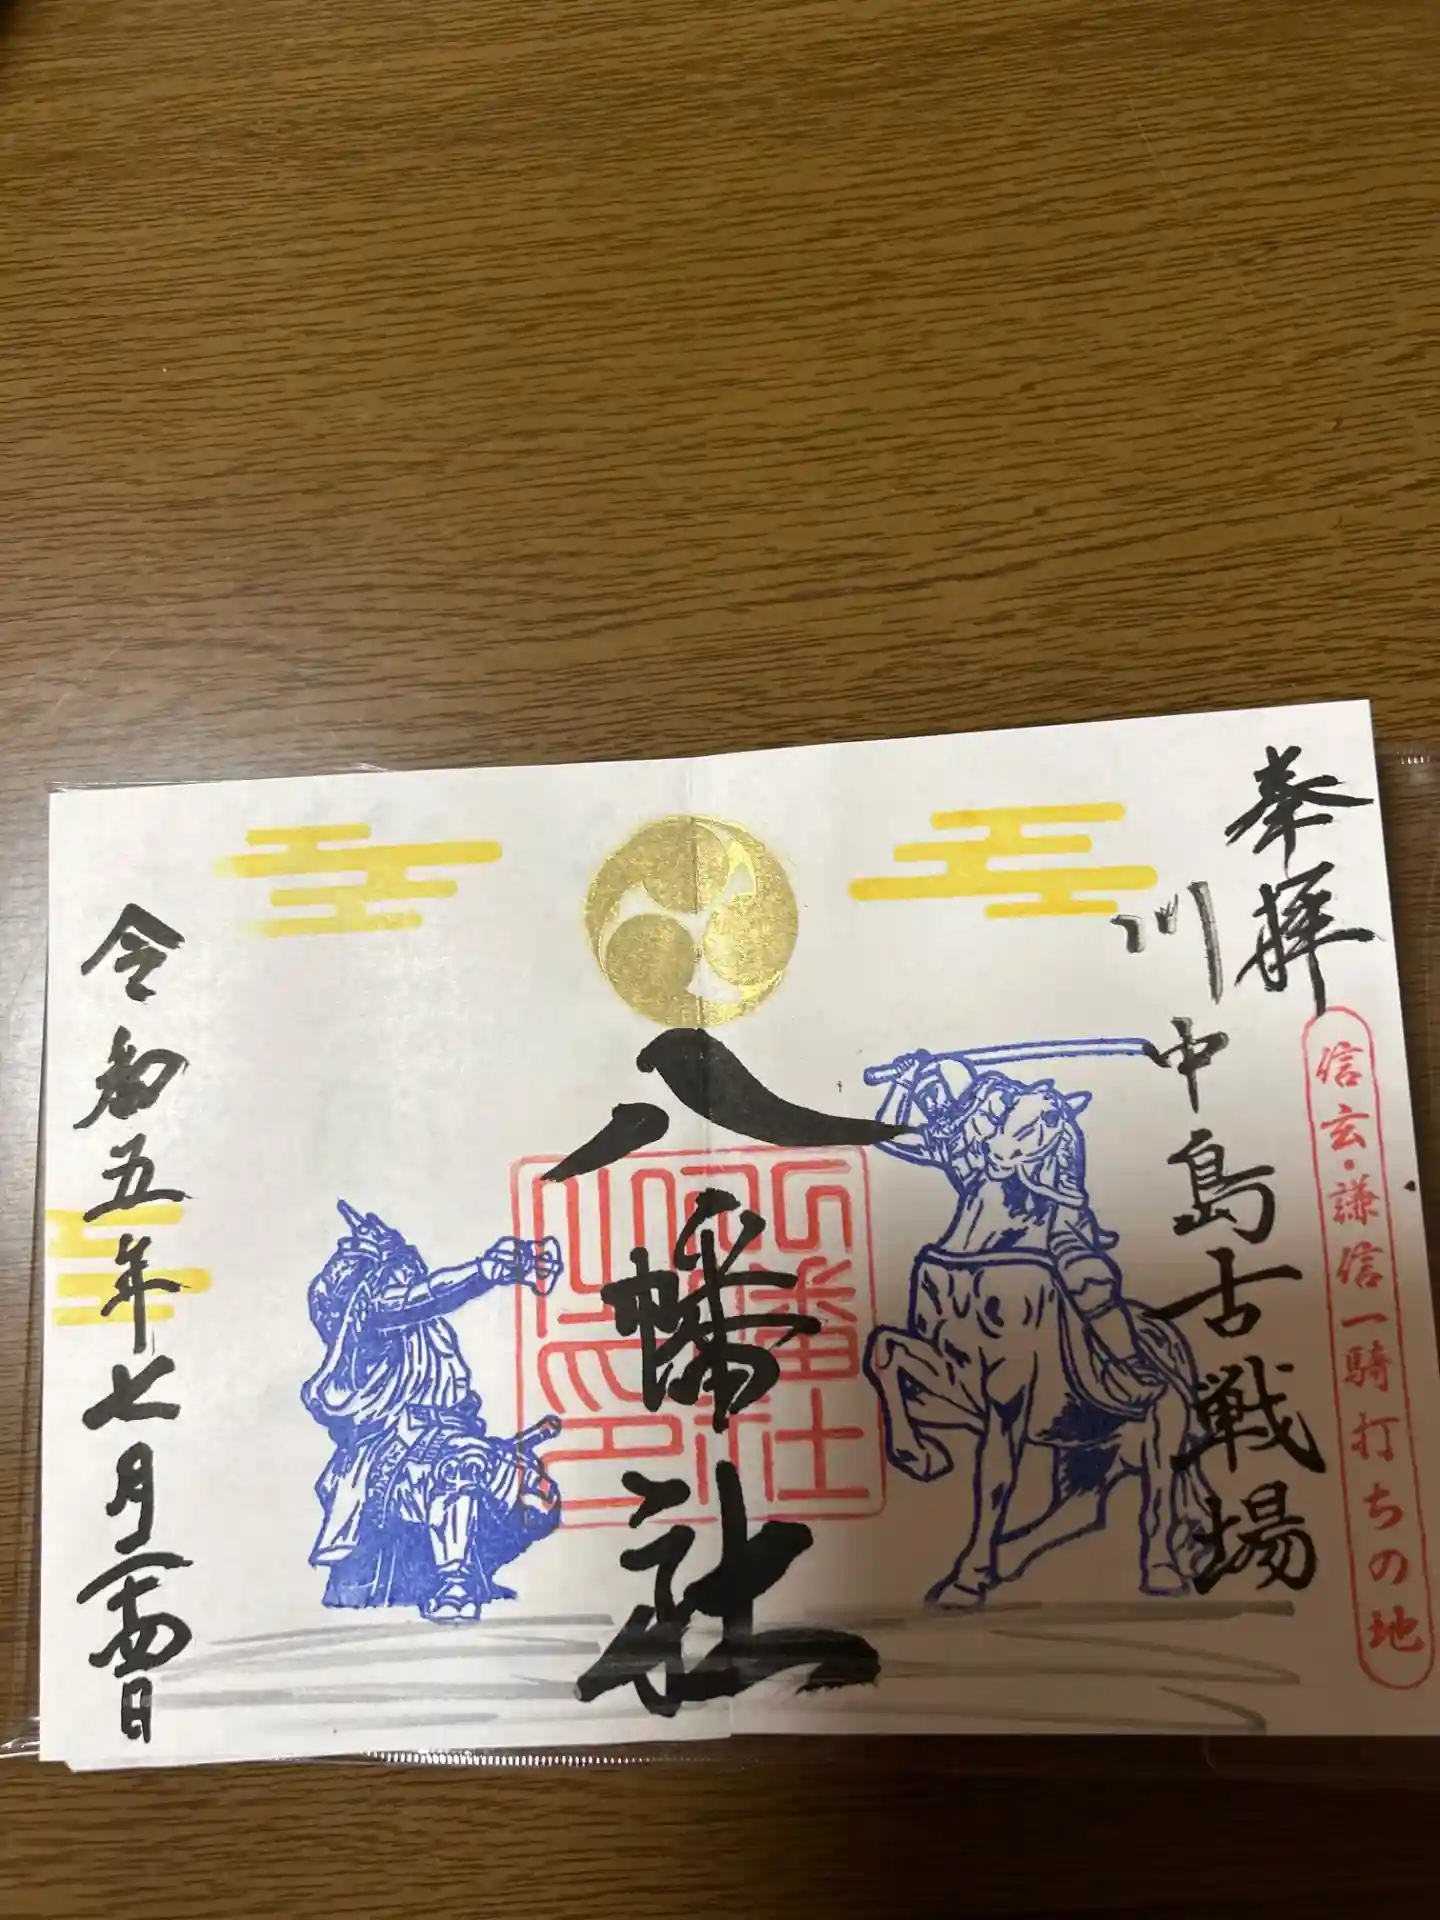 奉拝
信玄・謙信一騎打ちの地
川中島古戦場
八幡社
八幡社
令和五年七月二十四日